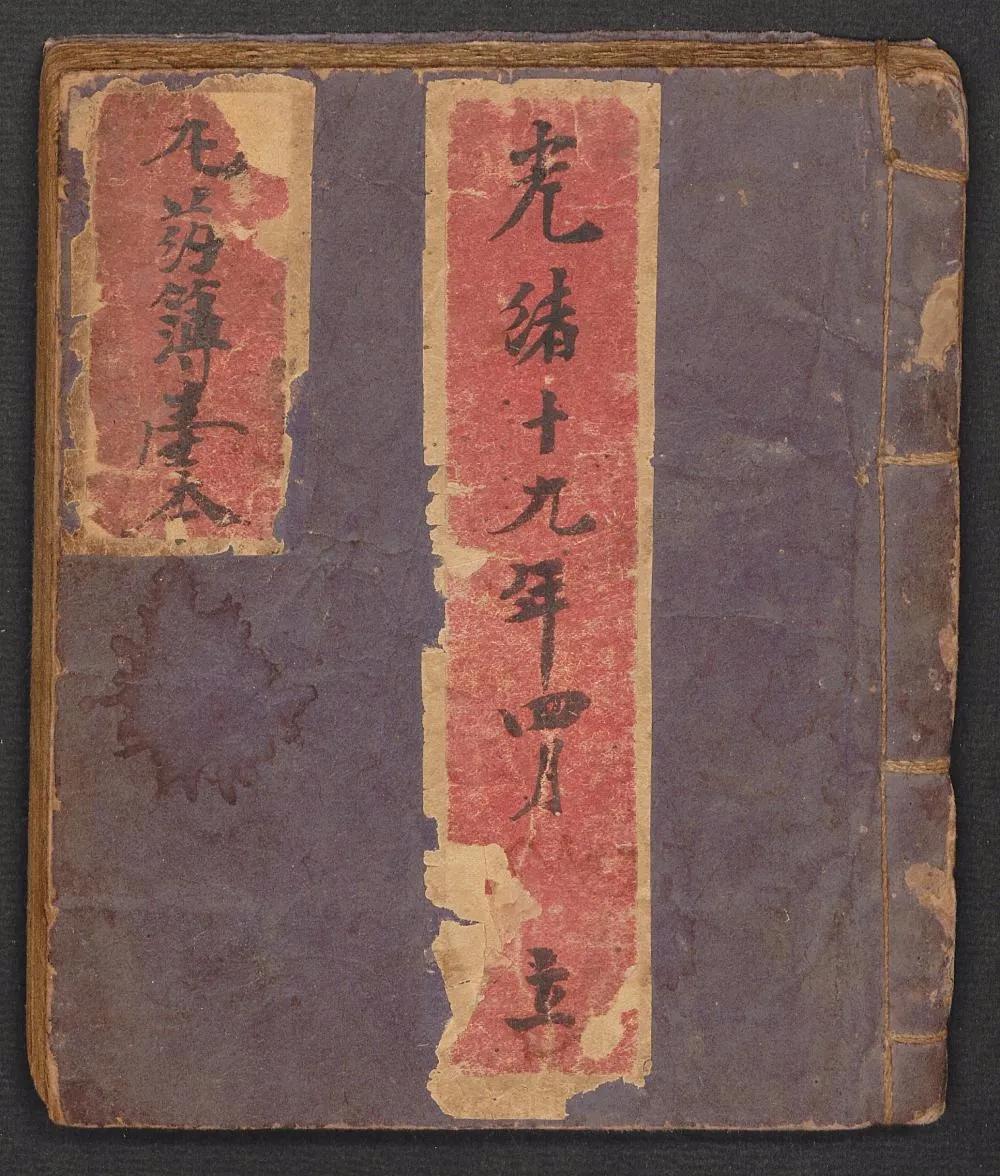 光緒十九年四月 立
丸药簿壹本